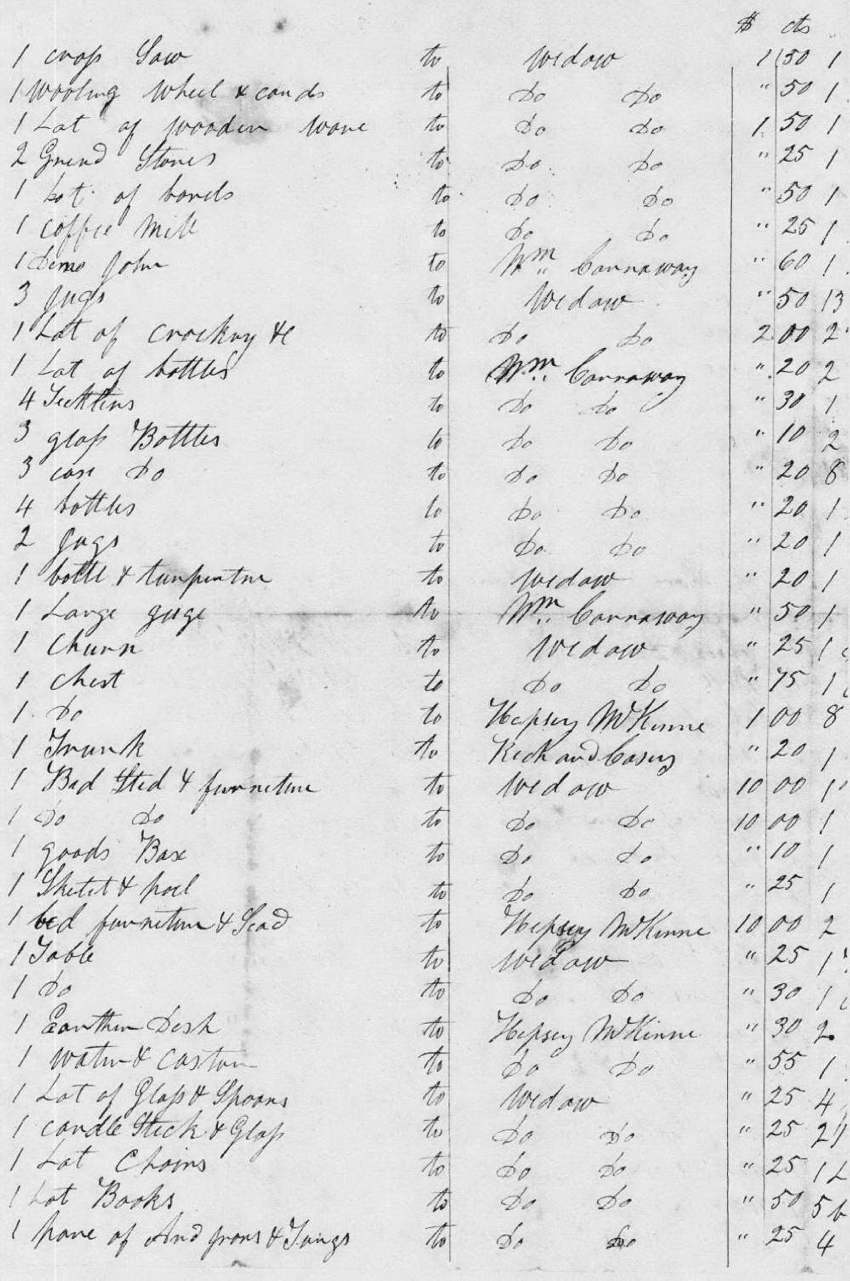 $ cts
1 crop Saw to Wedow 1 50 1
1 Wooling Wheel & cards to Do Do " 50 1
1 Lot of wooden ware to Do Do 1 50 1
2 Grend Stones to Do Do " 25 1
1 Lot of barels to Do Do " 50 1
1 coffee Mill to Do Do " 25 1
1 Demo John to Wm Carraway " 60 1
3 jugs to Wedow " 50 13
1 Lot of crockery &c to Do Do 2 00 2
1 Lot of bottles to Wm Carraway " 20 2
4 to Do Do " 30 1
3 glass Bottles to Do Do " 10 2
3 case Do to Do Do " 20 8
4 bottles to Do Do " 20 1
2 jugs to Do Do " 20 1
1 bottle & turpentine to Wedow " 20 1
1 Large guge to Wm Carraway " 50 1
1 Churn to Wedow " 25 1
1 Chest to Do Do " 75 1
1 Do to Hepsey McKinne 1 00 8
1 Trunk to Casey " 20 1
1 Bed Sted & furneture to Wedow 10 00 1
1 Do Do to Do Do 10 00 1
1 goods Box to Do Do " 10 1
1 & to Do Do " 25 1
1 bed furneture & Sted to Hepsey McKinne 10 00 2
1 Table to Wedow " 25 1
1 Do to Do Do " 30 1
1 Earthen Desh to Hepsey McKinne " 30 2
1 & castor to Do Do " 55 1
1 Lot of Glass & Spoons to Wedow " 25 4
1 candle Steck & Glass to Do Do " 25 21
1 Lot Chairs to Do Do " 25 1 L
1 Lot Books to Do Do " 50 5 b
1 pare of And irons & Tongs to Do Do " 25 4